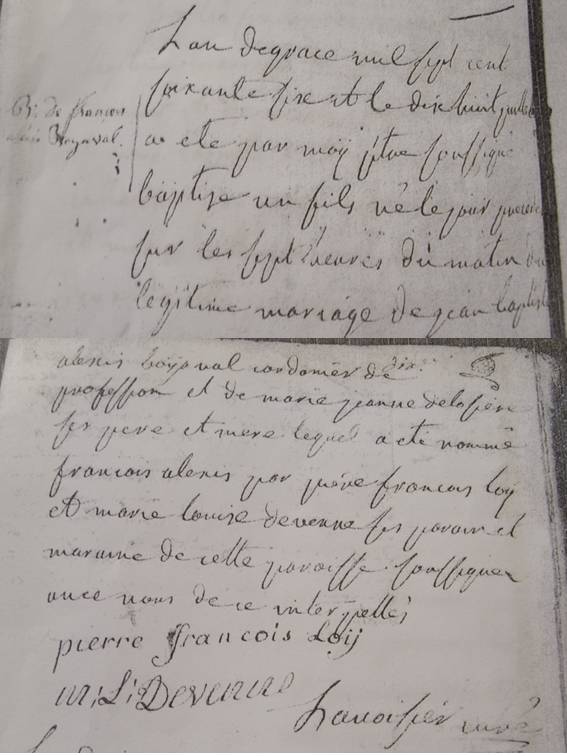 Bt. de francois
alexis Boyaval.
L'an de grace mil sept cent
soixante six et le dix huit juillet
a ete par moÿ ptre soussigné
baptise un fils né le jour
sur les sept heures du matin du
legitime mariage de jean baptiste
alexis boyaval cordonier de
profession et de marie jeanne
ses pere et mere lequel a eté nommé
francois alexis par pierre francois loÿ
et marie louise devenne ses parain et
maraine de cette paroisse soussignez
avec nous de ce interpellés
pierre francois Loÿ
m: L: Devenne
curé